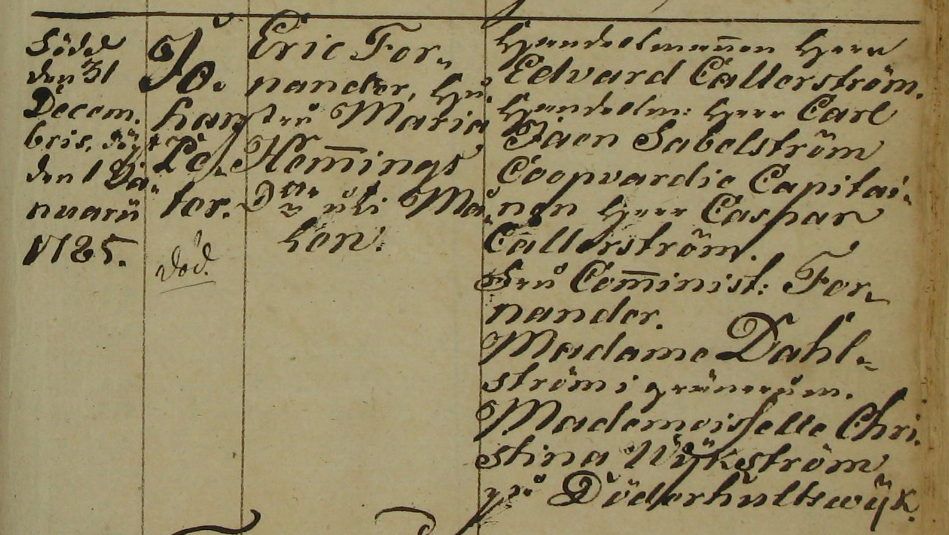 Född
den 31
Decem-
bris, döpt
den 1 Ja-
nuarii
1785.
Jo-
han
Pet-
ter.
död.
Eric For-
nander, Hu-
stru Maria
Hem̄ings
D:r uti Må-
len.
Handelsman̄en Herr
Edvard Callerström.
Handelsm: Herr Carl
Sabelström
Coopvardie Capitai-
nen Herr Caspar
Callerström.
Fru Com̄inist: For-
nander.
Madame Dahl-
ström i
Mademoiselle Chri-
stina Wijkström
på Döderhultswijk.